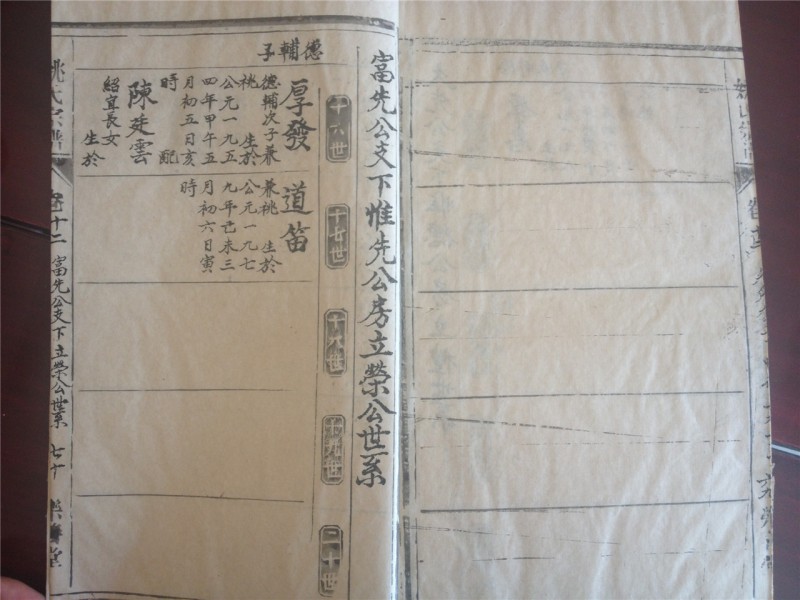 富先公支下惟先公房立榮公世系
十六世
十七世
十八世
十九世
二十世
德輔子
厚發
德輔次子兼
祧 生於
公元一九五
四年甲午五
月初五日亥
時 配
陳廷雲
紹宜長女
生於
道笛
兼祧 生於
公元一九七
九年己未三
月初六日寅
時
姚氏宗譜
卷十二 富先公支下立榮公世系 七十
堂